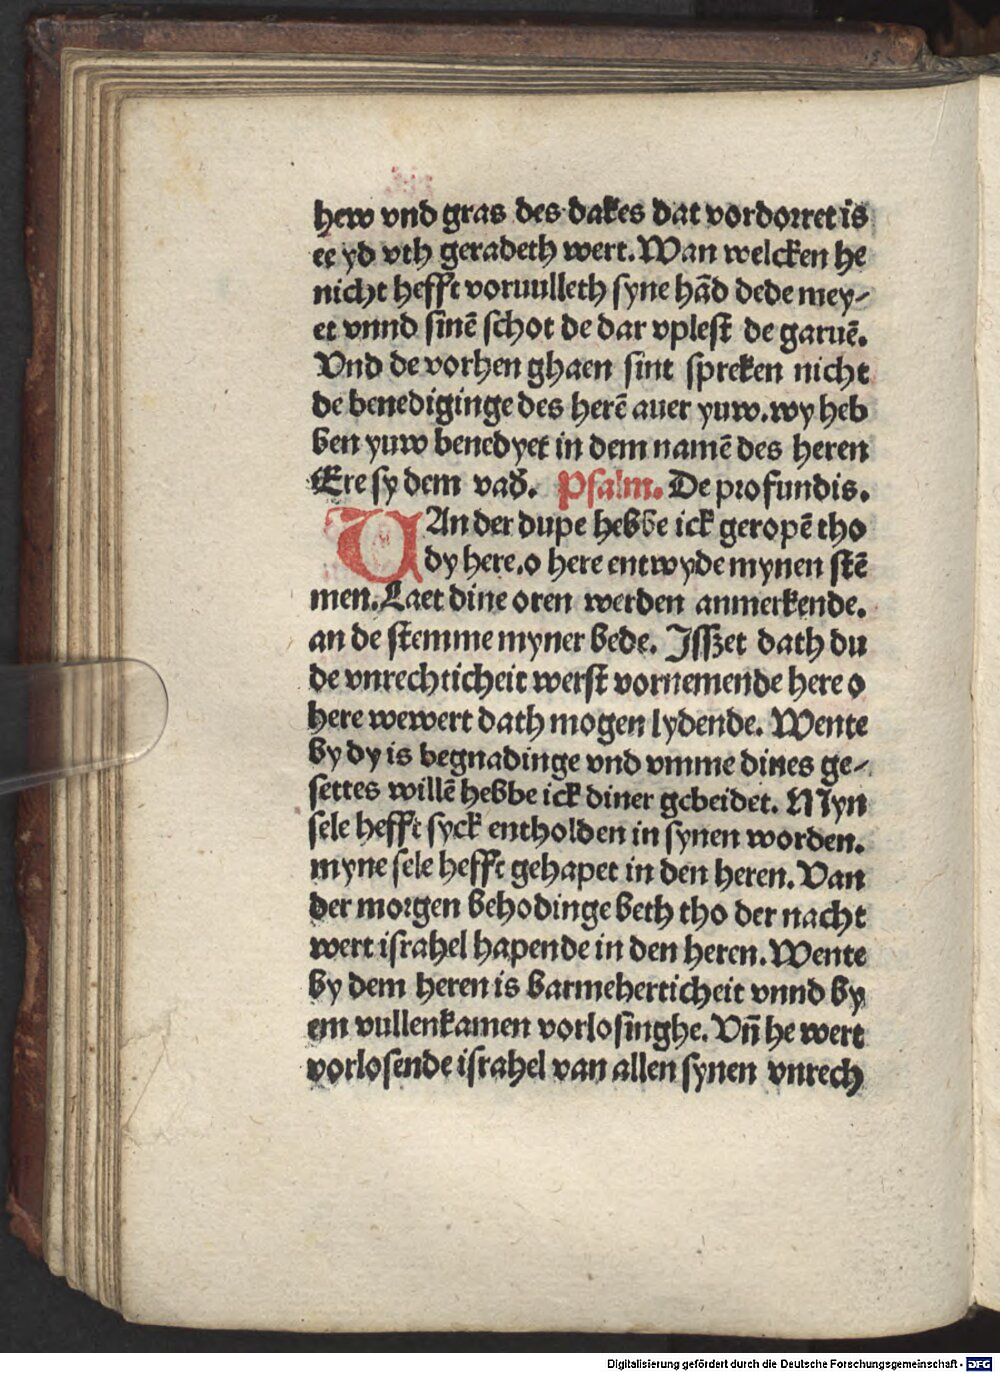 hew vnd gras des dakes dat vordorret is
ee yd vth geradeth wert. Wan welcken he
nicht hefft voruulleth syne hād dede mey-
et vnnd sinē schot de dar vplest de garuē.
Vnd de vorhen ghaen sint spreken nicht
de benediginge des herē auer yuw. wy heb
ben yuw benedyet in dem namē des heren
Ere sy dem vad̛. Psalm. De profundis.
VAn der dupe hebbe ick geropē tho
dy here. o here entwyde mynen stē
men. Laet dine oren werden anmerkende.
an de stemme myner bede. Isszet dath du
de vnrechticheit werst vornemende here o
here wewert dath mogen lydende. Wente
by dy is begnadinge vnd vmme dines ge-
settes willē hebbe ick diner gebeidet. Myn
sele hefft syck entholden in synen worden.
myne sele hefft gehapet in den heren. Van
der morgen behodinge beth tho der nacht
wert israhel hapende in den heren. Wente
by dem heren is barmeherticheit vnnd by
em vullenkamen vorlosinghe. Vn̄ he wert
vorlosende israhel van allen synen vnrech
Digitalisierung gefördert durch die Deutsche Forschungsgemeinschaft - DFG